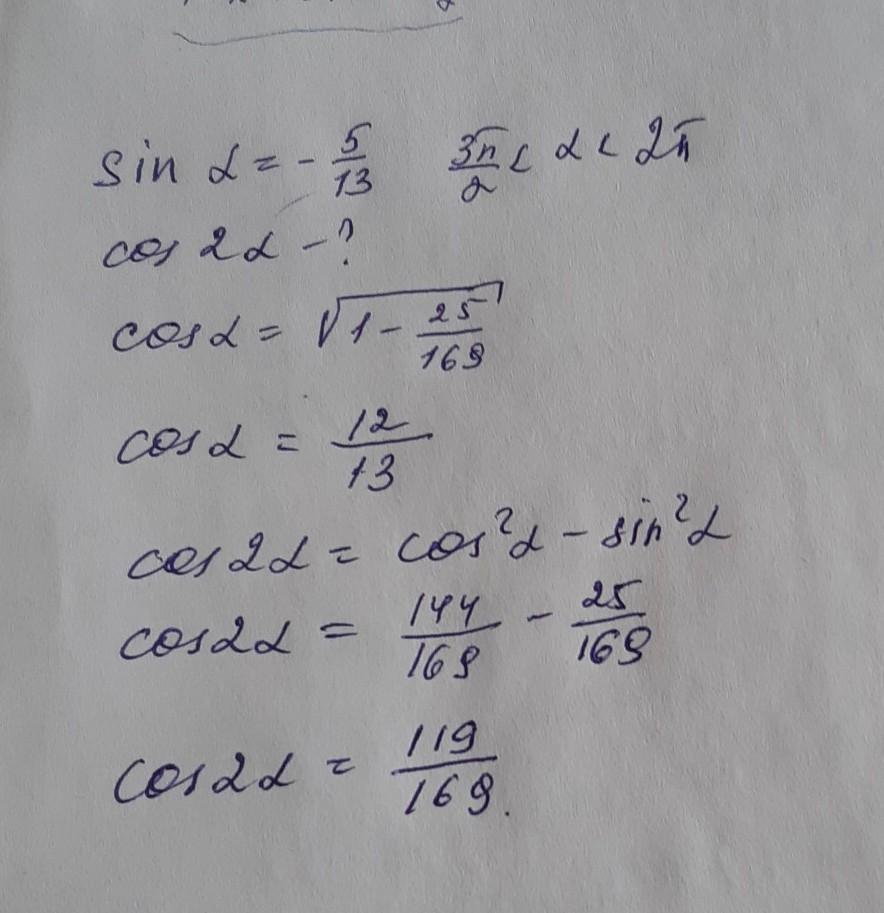 sin α = - 5/13 3π/2 < α < 2π
cos 2α - ?
cos α = √(1 - 25/169)
cos α = 12/13
cos 2α = cos²α - sin²α
cos 2α = 144/169 - 25/169
cos 2α = 119/169.